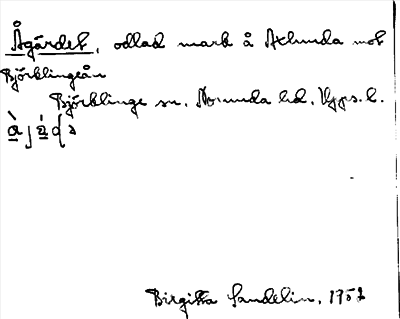 Ågärdet, odlad mark å Axlunda mot
Björklingeån
Björklinge sn. Norunda hd. Upps.l.
Birgitta Sandelin, 1952